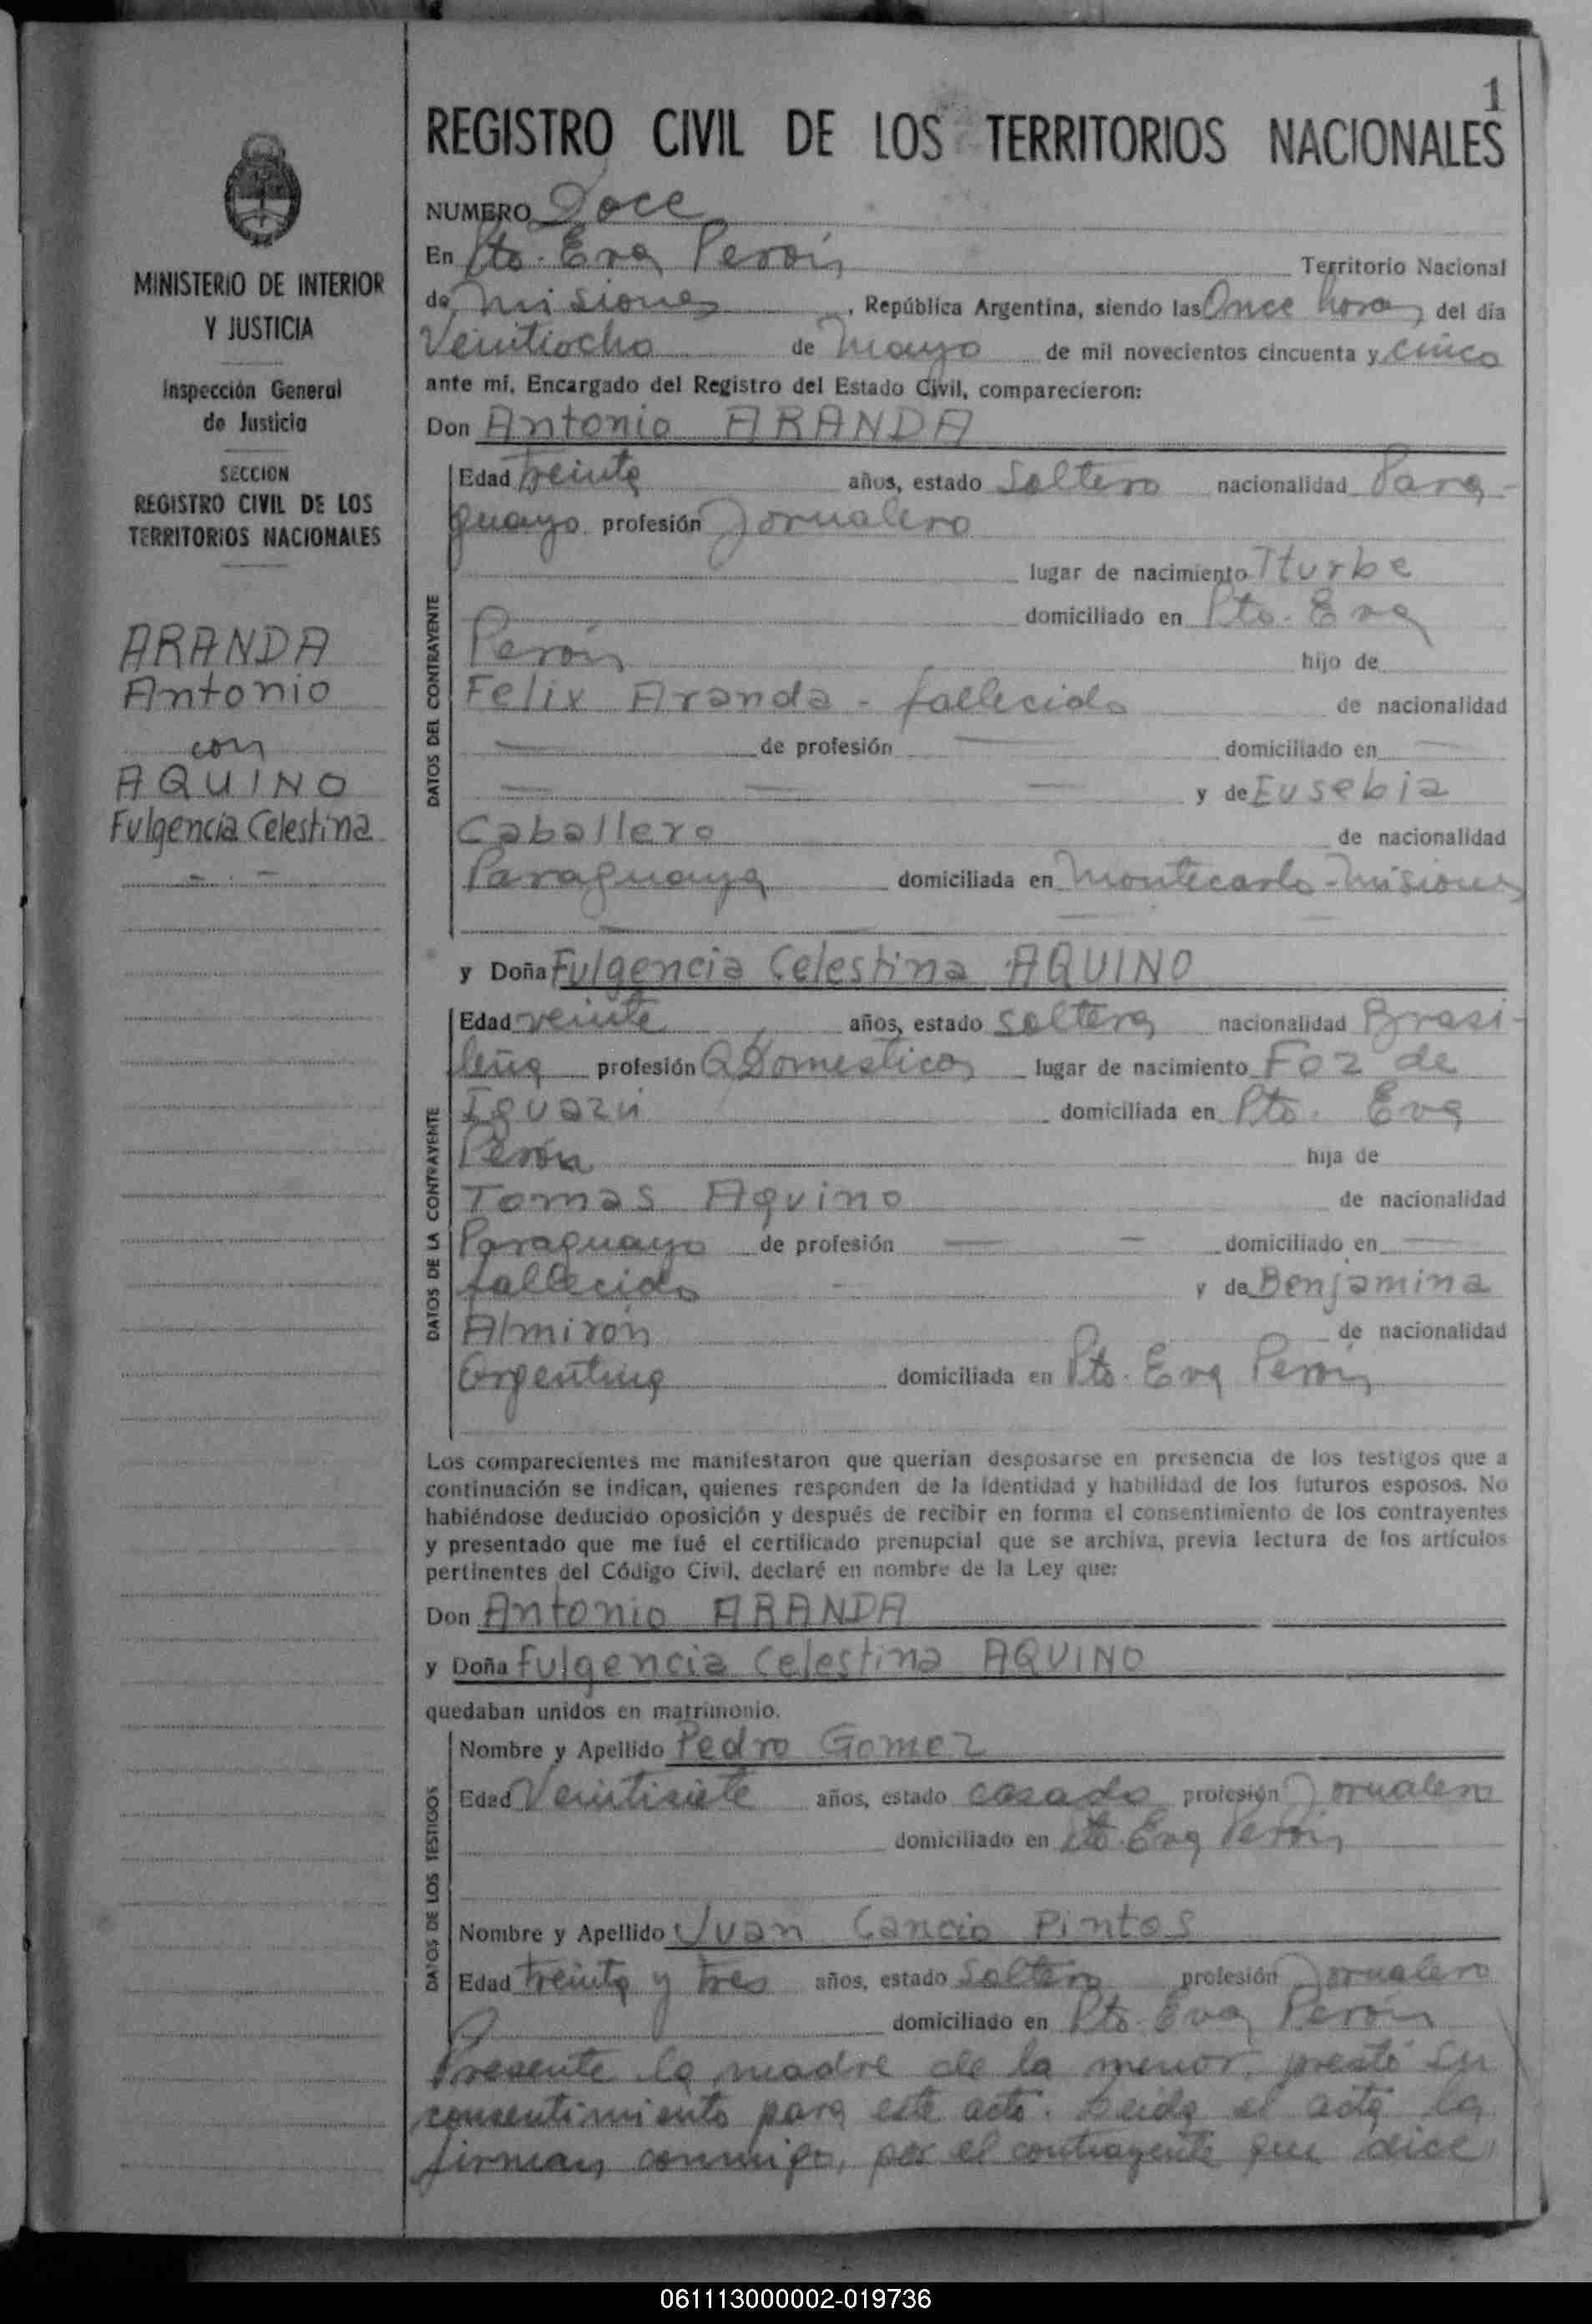 1
REGISTRO CIVIL DE LOS TERRITORIOS NACIONALES
MINISTERIO DE INTERIOR
Y JUSTICIA
Inspección General
de Justicia
SECCION
REGISTRO CIVIL DE LOS
TERRITORIOS NACIONALES
ARANDA
Antonio
con
AQUINO
Fulgencia Celestina
NUMERO Doce
En Pto. Eva Perón Territorio Nacional
de Misiones, República Argentina, siendo las Once horas del día
Veintiocho de Mayo de mil novecientos cincuenta y cinco
ante mí, Encargado del Registro del Estado Civil, comparecieron:
Don Antonio ARANDA
DATOS DEL CONTRAYENTE
Edad treinta años, estado Soltero nacionalidad Para-
guayo profesión Jornalero
lugar de nacimiento Iturbe
domiciliado en Pto. Eva
Perón hijo de
Felix Aranda - fallecido de nacionalidad
— de profesión — domiciliado en —
— — — y de Eusebia
Caballero de nacionalidad
Paraguaya domiciliada en Montecarlo - Misiones
y Doña Fulgencia Celestina AQUINO
DATOS DE LA CONTRAYENTE
Edad veinte años, estado soltera nacionalidad Brasi-
leña profesión Q. Domesticos lugar de nacimiento Foz de
Iguazú domiciliada en Pto. Eva
Perón hija de
Tomas Aquino de nacionalidad
Paraguayo de profesión — — domiciliado en —
fallecido - y de Benjamina
Almirón de nacionalidad
Argentina domiciliada en Pto. Eva Perón
Los comparecientes me manifestaron que querían desposarse en presencia de los testigos que a
continuación se indican, quienes responden de la identidad y habilidad de los futuros esposos. No
habiéndose deducido oposición y después de recibir en forma el consentimiento de los contrayentes
y presentado que me fué el certificado prenupcial que se archiva, previa lectura de los artículos
pertinentes del Código Civil, declaré en nombre de la Ley que:
Don Antonio ARANDA
y Doña Fulgencia Celestina AQUINO
quedaban unidos en matrimonio.
DATOS DE LOS TESTIGOS
Nombre y Apellido Pedro Gomez
Edad Veintisiete años, estado casado profesión Jornalero
domiciliado en Pto. Eva Perón
Nombre y Apellido Juan Cancio Pintos
Edad treinta y tres años, estado Soltero profesión Jornalero
domiciliado en Pto. Eva Perón
Presente la madre de la menor, prestó su
consentimiento para este acto. Leída el acta la
firman conmigo, por el contrayente que dice
061113000002-019736